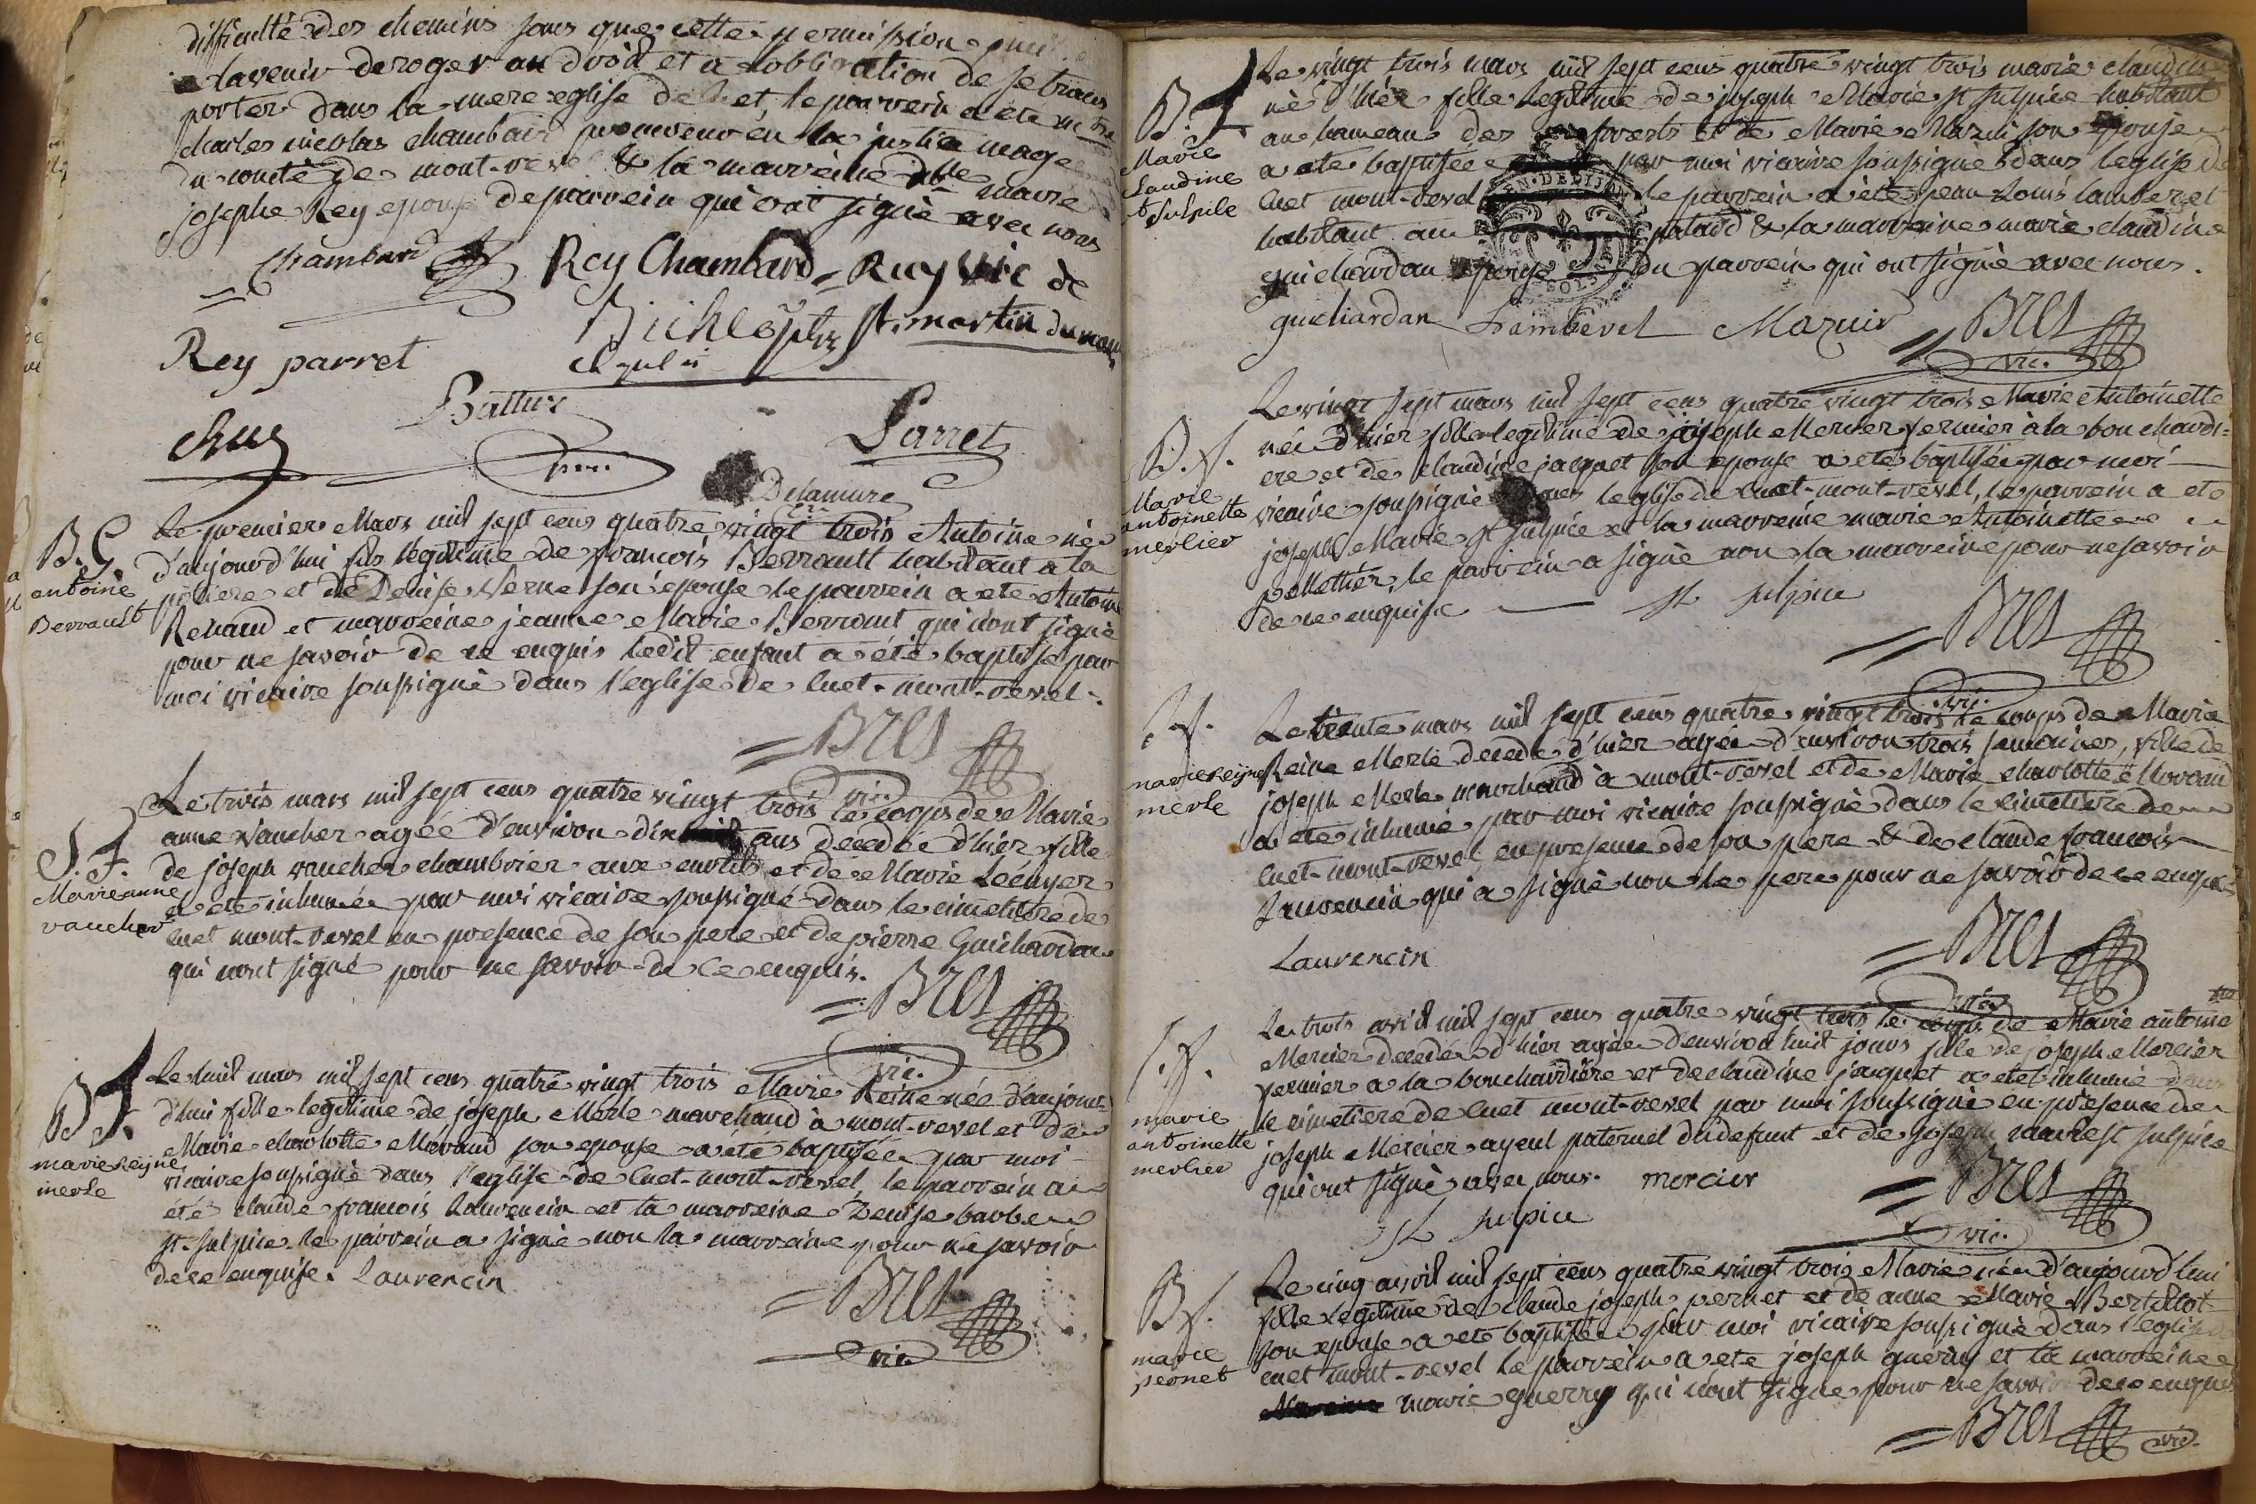 difficulté des chemins sans que cette permission puisse
a lavenir deroger au droit et a lobligation de se trans
porter dans la mere eglise de et le parrein a été
charles nicolas chambard procureur en la justice mage
du comté de mont-revel & la marreine dlle marie
josephe Rey epouse du parrein qui ont signé avec nous
Chambard Rey Chambard = Rey vic de
St. martin du mont
Rey parret
Battur Parret
Delamure
B. G.
antoine
Berrault
Le premier Mars mil sept cens quatre vingt trois Antoine né
d'aujourd'hui fils legitime de francois Berrault habitant a la
et de Denise Verne son epouse le parrein a ete Antoine
Renaud et marreine jeanne Marie Berrault qui n'ont signé
pour ne savoir de ce enquis ledit enfant a été baptisé par
moi vicaire soussigné dans l'eglise de Cuet-mont-revel.
= Bret
vic.
S. F.
Marie anne
vaucher
Le trois mars mil sept cens quatre vingt trois le corps de Marie
anne Vaucher agée d'environ dix ans decedée d'hier fille
de joseph vaucher chambrier aux et de Marie Lecuyer
a ete inhumée par moi vicaire soussigné dans le cimetiere de
Cuet mont-revel en presence de son pere et de pierre Guichardan
qui n'ont signé pour ne savoir de ce enquis.
= Bret
vic.
B F.
marie Reyne
merle
Le huit mars mil sept cens quatre vingt trois Marie Reine née d'aujour-
d'hui fille legitime de joseph Merle marchand à mont-revel et de
Marie charlotte Morand son epouse a été baptisée par moi
vicaire soussigné dans l'eglise de Cuet-mont-revel le parrein a
été claude francois Laurencin et la marreine Denise barbe
st. sulpice le parrein a signé non la marreine pour ne savoir
de ce enquise. Laurencin
= Bret
vic.
B. F.
Marie
Claudine
St Sulpice
Le vingt trois mars mil sept cens quatre vingt trois marie claudine
née d'hier fille legitime de joseph Marie st sulpice habitant
au hameau des et de Marie Mazuir son epouse
a ete baptisée par moi vicaire soussigné dans l'eglise de
Cuet mont-revel le parrein a été jean Louis Lamberet
habitant au & la marreine marie claudine
guichardan epouse du parrein qui ont signé avec nous.
guichardan Lamberet Mazuir = Bret
vic.
B. f.
Marie
antoinette
mercier
Le vingt sept mars mil sept cens quatre vingt trois Marie Antoinette
née d'hier fille legitime de joseph Mercier fermier à la bouchardi-
ere et de claudine jacquet son epouse a eté baptisée par moi
vicaire soussigné dans l'eglise de Cuet-mont-revel, le parrein a eté
joseph Marie st sulpice et la marreine marie Antoinette
pellottier, le parrein a signé non la marreine pour ne savoir
de ce enquise st sulpice
= Bret
vic.
S. f.
marie Reijne
merle
Le trente mars mil sept cens quatre vingt trois le corps de Marie
Reine Merle decedé d'hier agée d'environ trois semaines, fille de
joseph Merle marchand à mont-revel et de Marie charlotte Morand
a été inhumé par moi vicaire soussigné dans le cimetiere de
Cuet-mont-revel en presence de son pere & de claude francois
Laurencin qui a signé non le pere pour ne savoir de ce enquis
Laurencin
= Bret
vic.
S. f.
marie
antoinette
mercier
Le trois avril mil sept cens quatre vingt trois le corps de Marie antoine
Mercier decedé d'hier agée d'environ huit jours fille de joseph Mercier
fermier a la bouchardière et de claudine jacquet a ete inhumé dans
le cimetiere de Cuet mont-revel par moi soussigné en presence de
joseph Mercier ayeul paternel du defunt et de joseph marie st sulpice
qui ont signé avec nous. mercier
st sulpice
= Bret
vic.
B f.
marie
pernet
Le cinq avril mil sept cens quatre vingt trois Marie née d'aujourd'hui
fille legitime de claude joseph pernet et de anne Marie Bertillot
son epouse a eté baptisée par moi vicaire soussigné dans l'eglise de
cuet mont-revel le parrein a ete joseph guerry et la marreine
marie guerry qui n'ont signé pour ne savoir de ce enquis
= Bret
vic.